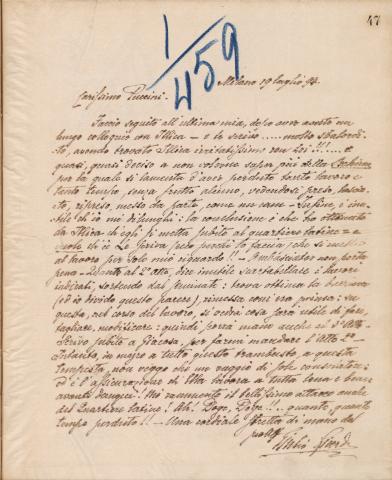 47
1/459
Milano 19 luglio 94.
Carissimo Puccini.
Faccio seguito all'ultima mia, dopo aver avuto un
lungo colloquio con Illica – e le scrivo ..... molto sbalordi-
to, avendo trovato Illica irritatissimo con Lei!!! .... e
quasi, quasi deciso a non volerne saper più della Bohème
per la quale si lamenta d'aver perduto tanto lavoro e
tanto tempo senza frutto alcuno, vedendosi preso, lascia-
to, ripreso, messo da parte, come un cane – Infine, è inu-
tile ch'io mi dilunghi: la conclusione è che ho ottenuto
da Illica ch'egli si metta subito al quartiere latino = e
vuole ch'io Le scriva però perchè lo faccia, che si mette
al lavoro per solo mio riguardo!! – Ambasciator non porta
pena – Intanto al 2º atto, dice inutile
sortendo dal seminato: trova ottima la barriera
(ed io divido questo parere), rimessa com'era prima: su
questa, nel corso del lavoro, si vedrà cosa sarà utile di fare,
tagliare, modificare: quindi porrà mano anche al 3º atto
Scrivo subito a Giacosa, per farmi mandare l'atto 2º –
Intanto, in mezzo a tutto questo trambusto, a questa
tempesta, non veggo che un raggio di sole consolatore:
ed è l'assicurazione che Ella lavora a tutta lena e bene
avanti dunque! Mi rammento il bellissimo attacco anche
del Quartiere latino! Ah! Doge, Doge!! ... quanto, quanto
tempo perduto!! – Una cordiale stretta di mano dal
suo aff
Giulio Ricordi